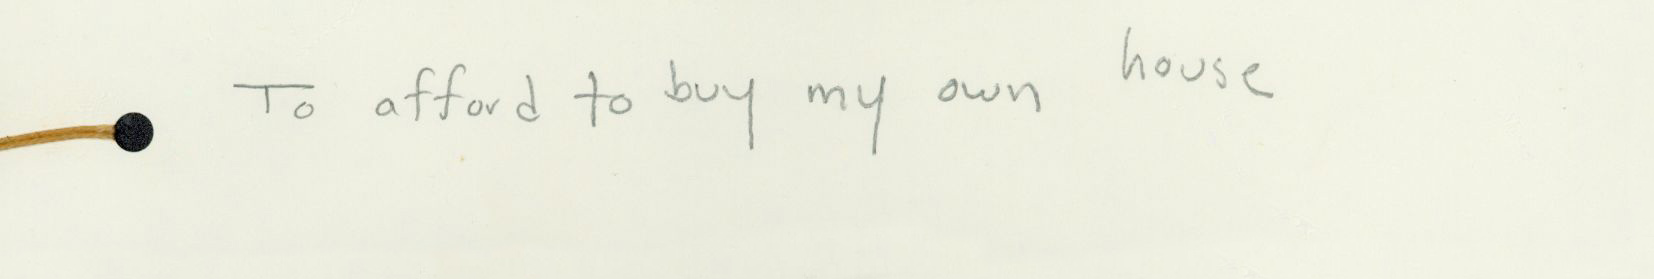 To afford to buy my own house